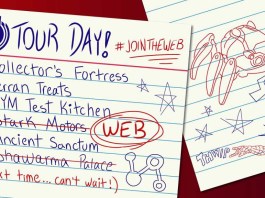 TOUR DAY!
#JOINTHEWEB
ollector's Fortress
erran Treats
YM Test Kitchen
Stark Motors WEB
Ancient Sanctum
Shawarma Palace
xt time... can't wait!)
THWIP